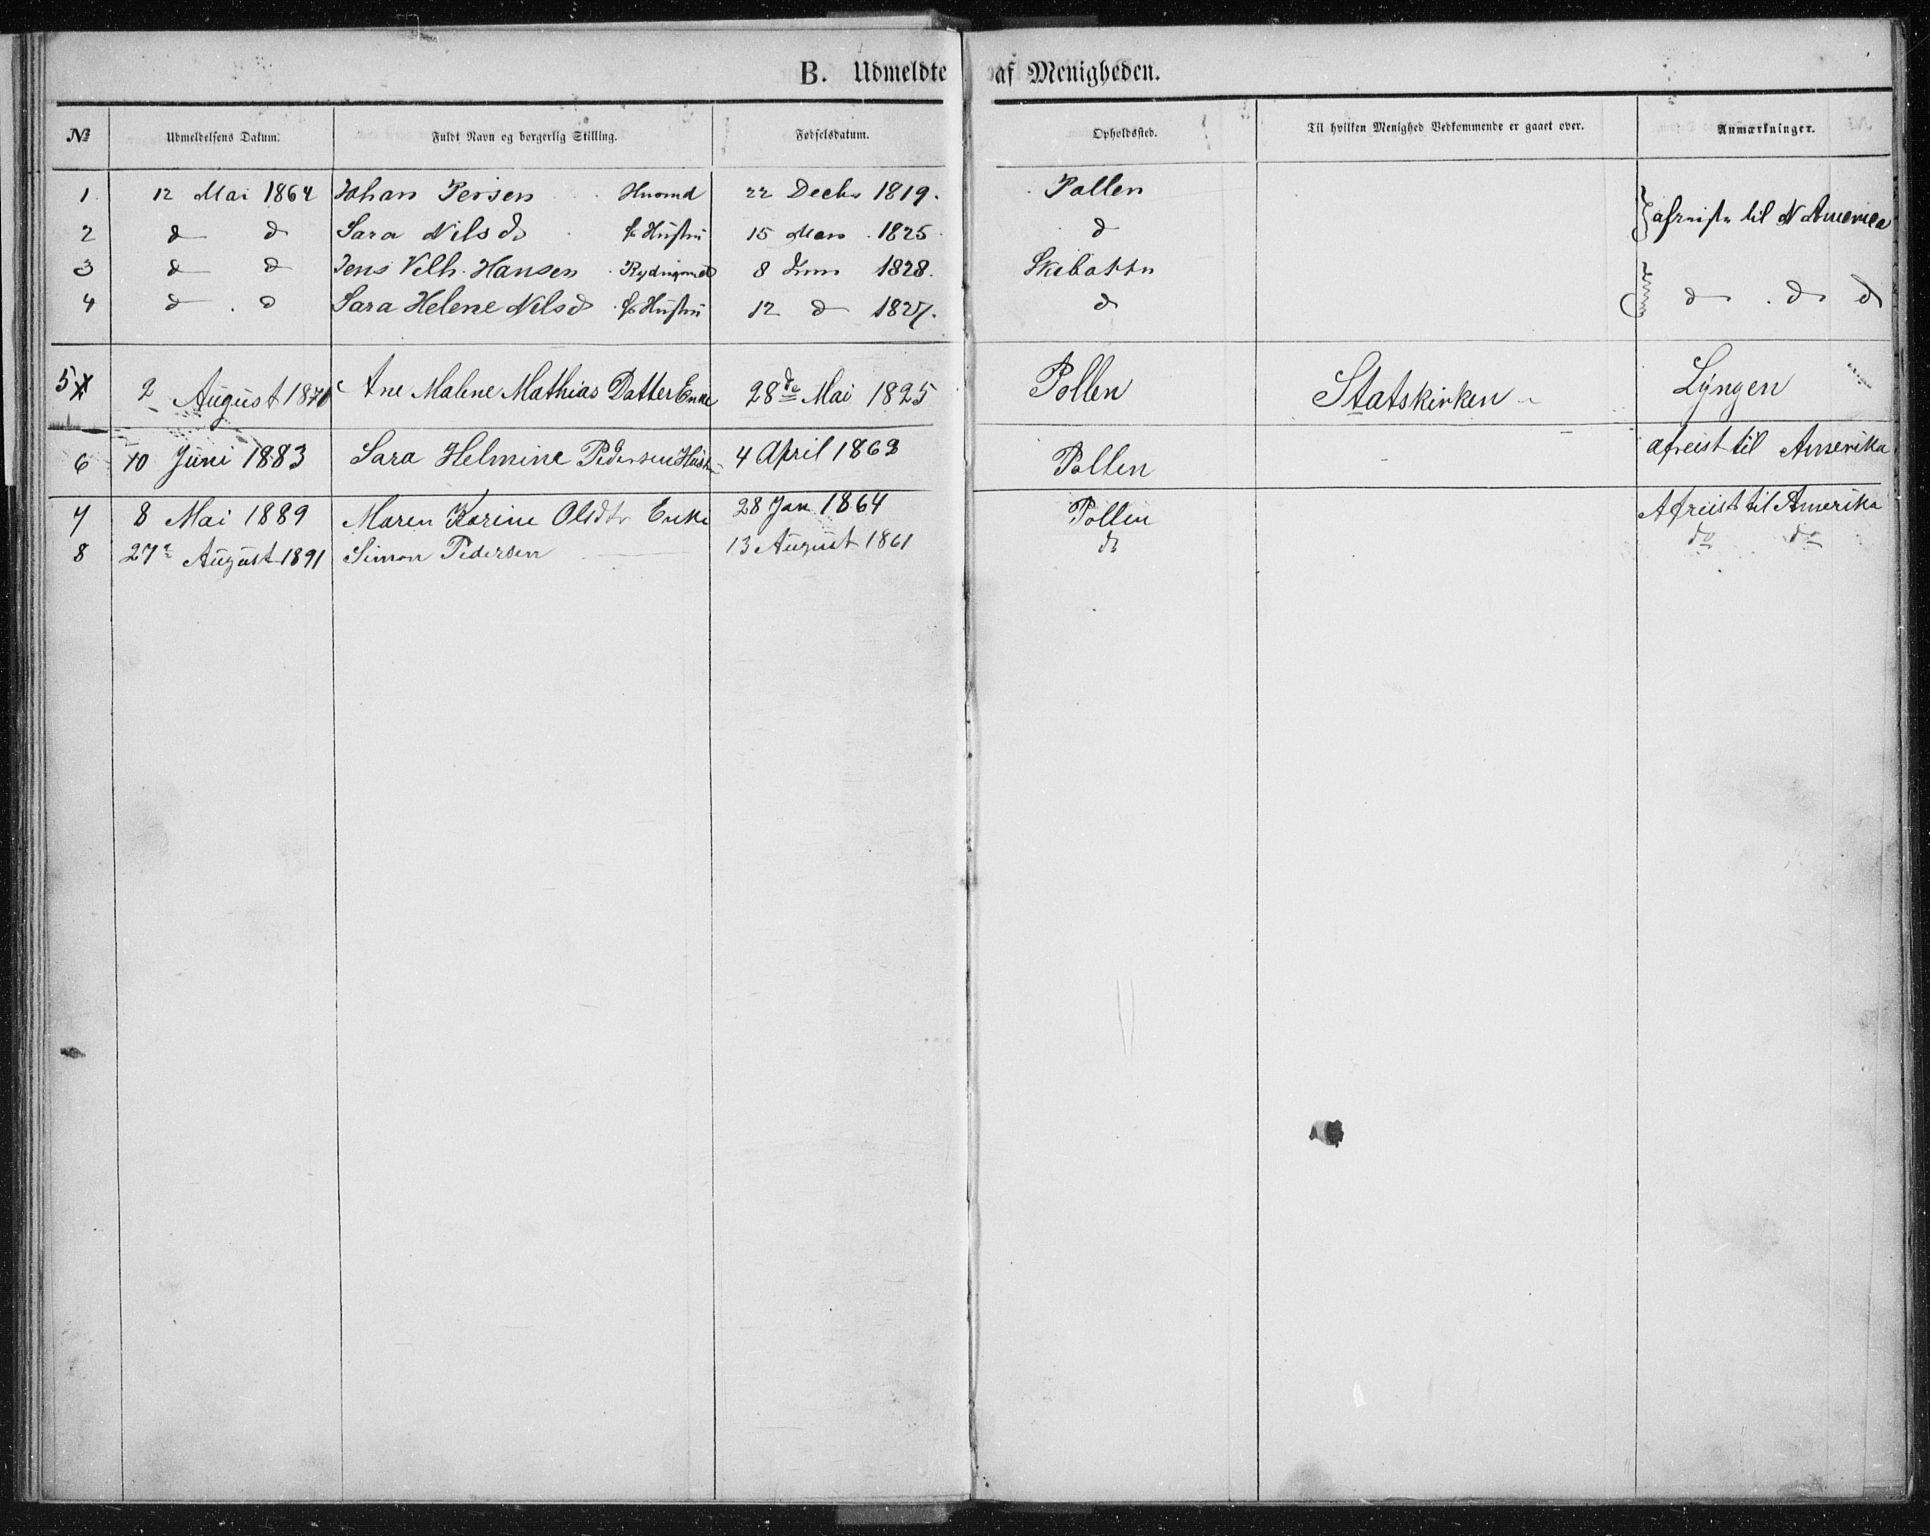 B. Udmeldte af Menigheden.
№ Udmeldelsens Datum. Fuldt Navn og borgerlig Stilling. Fødselsdatum. Opholdssted. Til hvilken Menighed Vedkommende er gaaet over. Anmærkninger.
1 12 Mai 1864 Johan Persen 22 Decbr 1819. Pollen
2 d d Sara Nilsd Hustru 15 Mars 1825. d } afreist til N America
3 d d Jens Vilh. Hansen 8 Juni 1828. Skibotten
4 d d Sara Helene Nilsd Hustru 12 d 1827. d } d d d
5 2 August 1870 Ane Malene Mathias Datter Enke 28de Mai 1825 Pollen Statskirken Lÿngen
6 10 Juni 1883 Sara Helmine Pedersen Hustr 4 April 1863 Pollen afreist til Amerika
7 8 Mai 1889 Maren Karine Olsdtr Enke 28 Jan 1864 Pollen Afreist til Amerika
8 27 August 1891 Simon Pedersen 13 August 1861 do do do